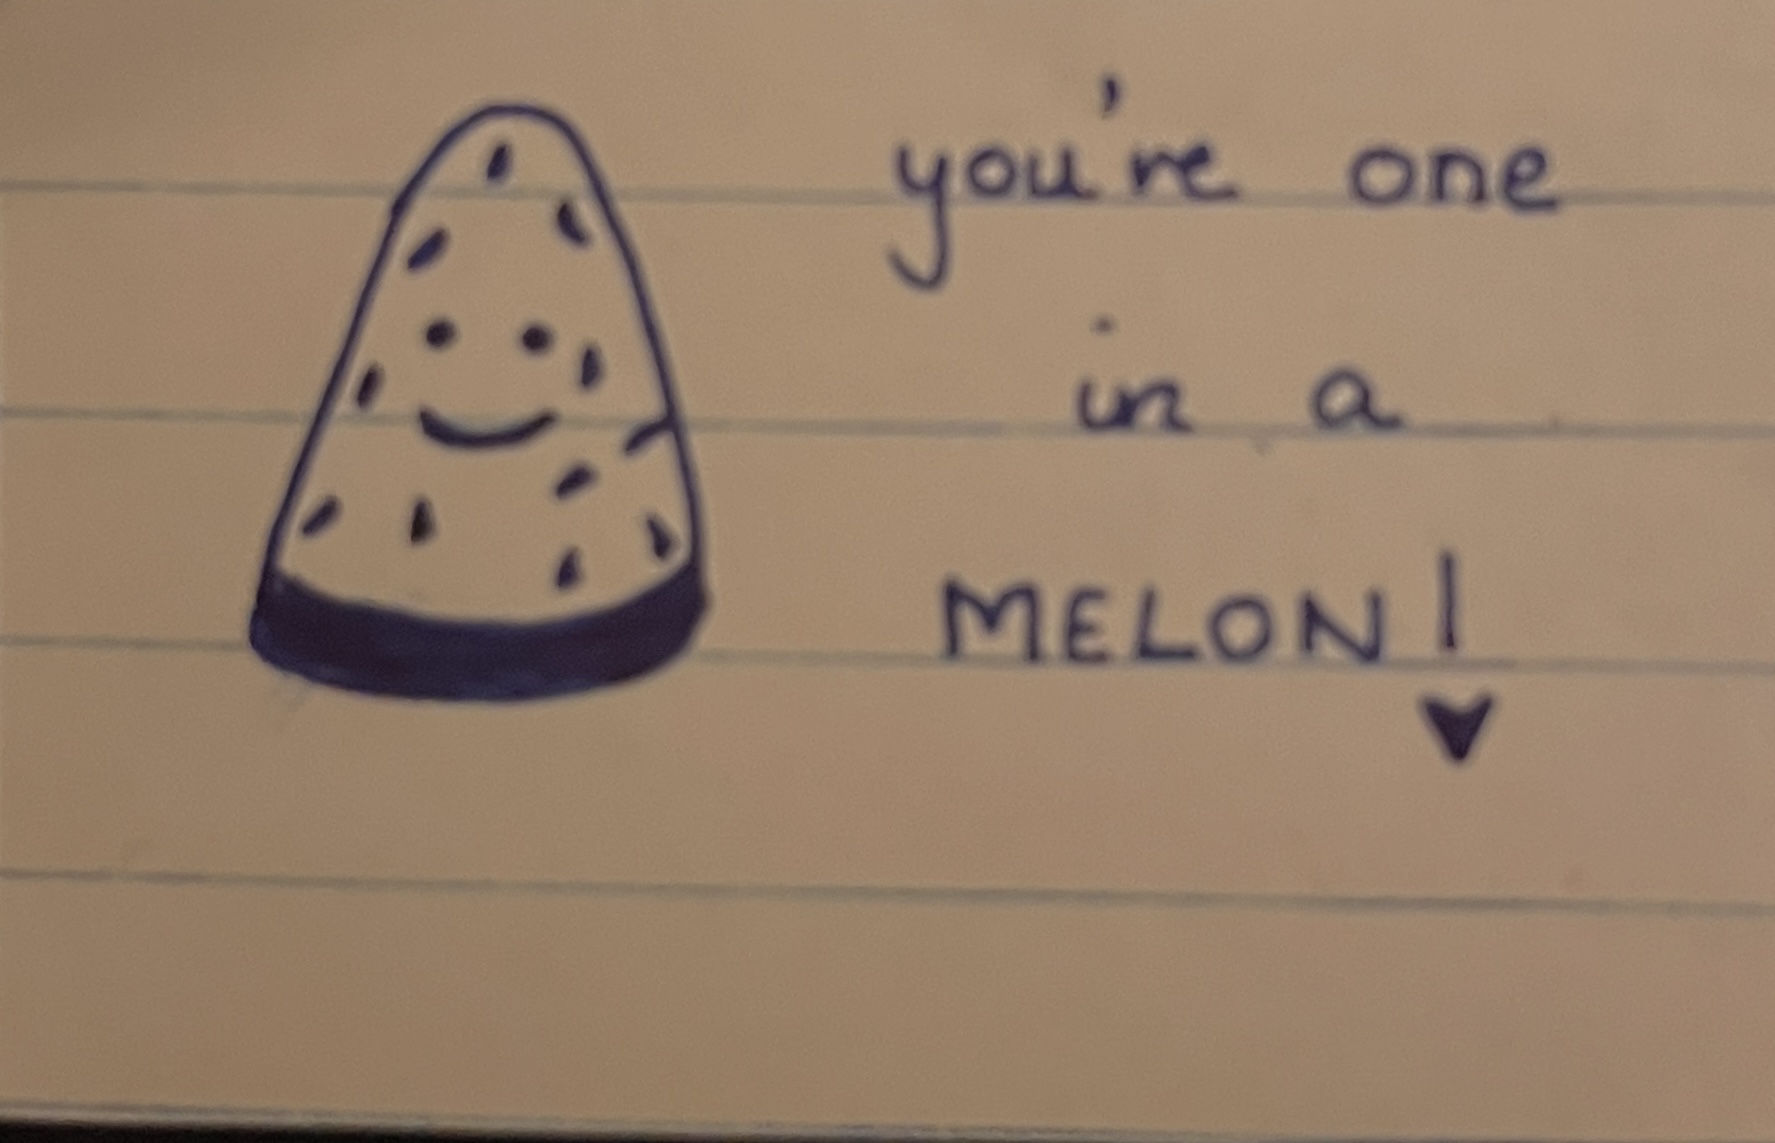 you're one
in a
MELON!